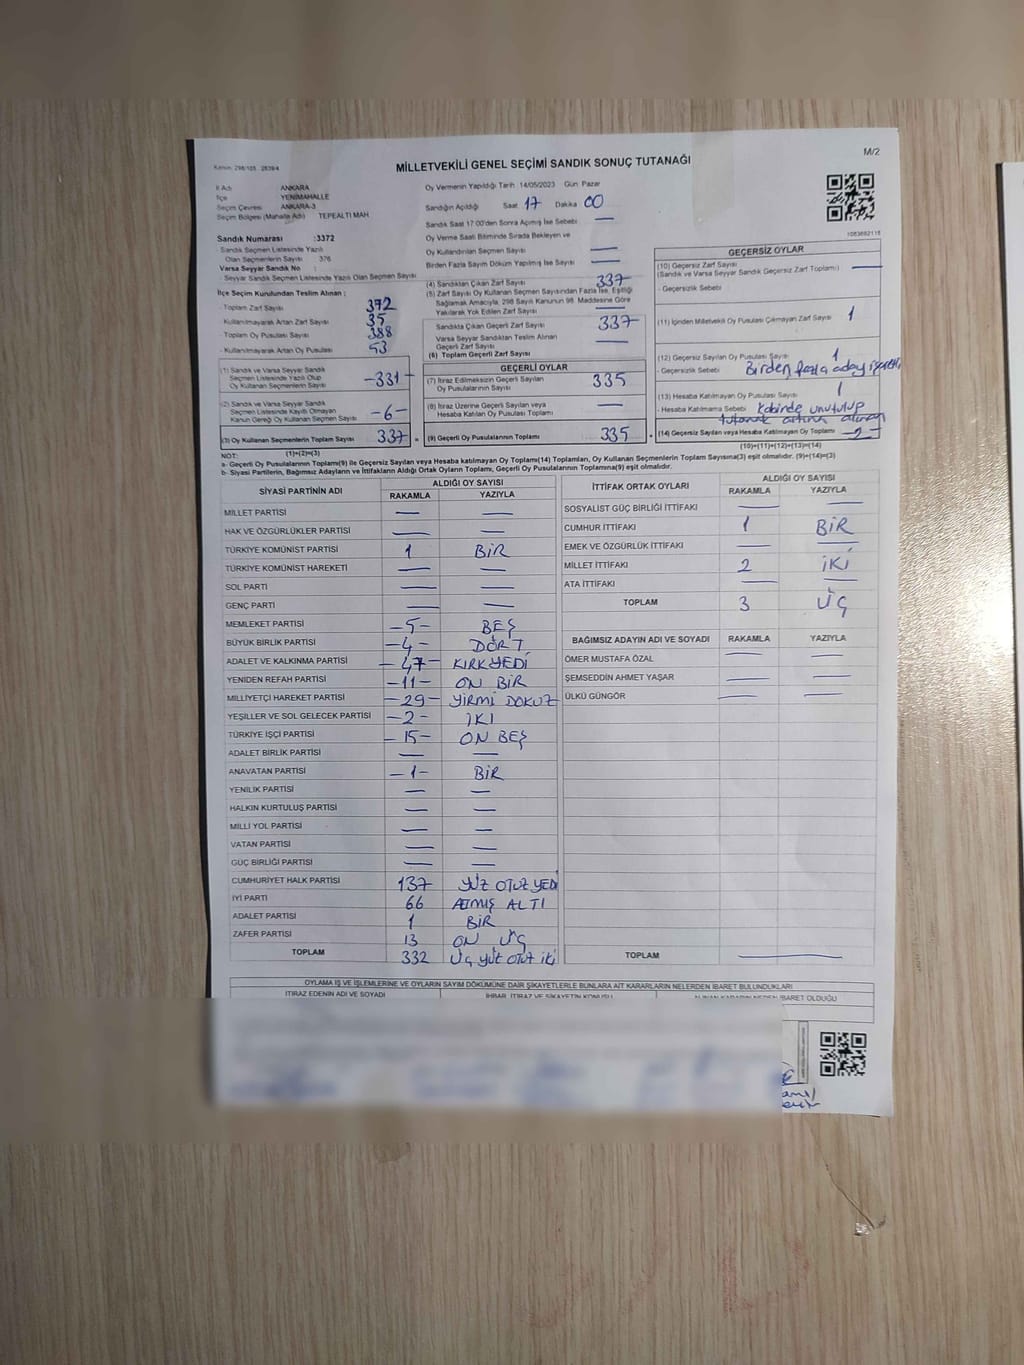 M/2
MİLLETVEKİLİ GENEL SEÇİMİ SANDIK SONUÇ TUTANAĞI
İl Adı ANKARA
İlçe YENİMAHALLE
Seçim Çevresi ANKARA-3
Seçim Bölgesi (Mahalle Adı) TEPEALTI MAH
Sandık Numarası :3372
Sandık Seçmen Listesinde Yazılı
Olan Seçmenlerin Sayısı 376
Varsa Seyyar Sandık No :
- Seyyar Sandık Seçmen Listesinde Yazılı Olan Seçmen Sayısı
İlçe Seçim Kurulundan Teslim Alınan :
- Toplam Zarf Sayısı 372
- Kullanılmayarak Artan Zarf Sayısı 35
- Toplam Oy Pusulası Sayısı 388
- Kullanılmayarak Artan Oy Pusulası 53
(1) Sandık ve Varsa Seyyar Sandık
Seçmen Listesinde Yazılı Olup
Oy Kullanan Seçmenlerin Sayısı -331-
(2) Sandık ve Varsa Seyyar Sandık
Seçmen Listesinde Kayıtlı Olmayan
Kanun Gereği Oy Kullanan Seçmen Sayısı -6-
(3) Oy Kullanan Seçmenlerin Toplam Sayısı 337
(1)+(2)=(3)
Oy Vermenin Yapıldığı Tarih 14/05/2023 Gün Pazar
Sandığın Açıldığı Saat 17 Dakika 00
Sandık Saat 17:00'den Sonra Açılmış İse Sebebi —
Oy Verme Saati Bitiminde Sırada Bekleyen ve
Oy Kullandırılan Seçmen Sayısı —
Birden Fazla Sayım Döküm Yapılmış İse Sayısı —
(4) Sandıktan Çıkan Zarf Sayısı 337
(5) Zarf Sayısı Oy Kullanan Seçmen Sayısından Fazla İse, Eşitliği
Sağlamak Amacıyla, 298 Sayılı Kanunun 98. Maddesine Göre
Yakılarak Yok Edilen Zarf Sayısı —
Sandıkta Çıkan Geçerli Zarf Sayısı 337
Varsa Seyyar Sandıktan Teslim Alınan
Geçerli Zarf Sayısı —
(6) Toplam Geçerli Zarf Sayısı
GEÇERLİ OYLAR
(7) İtiraz Edilmeksizin Geçerli Sayılan
Oy Pusulalarının Sayısı 335
(8) İtiraz Üzerine Geçerli Sayılan veya
Hesaba Katılan Oy Pusulası Toplamı —
= (9) Geçerli Oy Pusulalarının Toplamı 335
1083682118
GEÇERSİZ OYLAR
(10) Geçersiz Zarf Sayısı
(Sandık ve Varsa Seyyar Sandık Geçersiz Zarf Toplamı) —
- Geçersizlik Sebebi
(11) İçinden Milletvekili Oy Pusulası Çıkmayan Zarf Sayısı 1
(12) Geçersiz Sayılan Oy Pusulası Sayısı 1
- Geçersizlik Sebebi Birden fazla aday
(13) Hesaba Katılmayan Oy Pusulası Sayısı 1
- Hesaba Katılmama Sebebi Kabinde unutulup
tutanak
+ (14) Geçersiz Sayılan veya Hesaba Katılmayan Oy Toplamı -2-
(10)+(11)+(12)+(13)=(14)
NOT:
a- Geçerli Oy Pusulalarının Toplamı(9) ile Geçersiz Sayılan veya Hesaba katılmayan Oy Toplamı(14) Toplamları, Oy Kullanan Seçmenlerin Toplam Sayısına(3) eşit olmalıdır. (9)+(14)=(3)
b- Siyasi Partilerin, Bağımsız Adayların ve İttifakların Aldığı Ortak Oyların Toplamı, Geçerli Oy Pusulalarının Toplamına(9) eşit olmalıdır.
SİYASİ PARTİNİN ADI ALDIĞI OY SAYISI
RAKAMLA YAZIYLA
MİLLET PARTİSİ — —
HAK VE ÖZGÜRLÜKLER PARTİSİ — —
TÜRKİYE KOMÜNİST PARTİSİ 1 BİR
TÜRKİYE KOMÜNİST HAREKETİ — —
SOL PARTİ — —
GENÇ PARTİ — —
MEMLEKET PARTİSİ -5- BEŞ
BÜYÜK BİRLİK PARTİSİ -4- DÖRT
ADALET VE KALKINMA PARTİSİ -47- KIRKYEDİ
YENİDEN REFAH PARTİSİ -11- ON BİR
MİLLİYETÇİ HAREKET PARTİSİ -29- YİRMİ DOKUZ
YEŞİLLER VE SOL GELECEK PARTİSİ -2- İKİ
TÜRKİYE İŞÇİ PARTİSİ -15- ON BEŞ
ADALET BİRLİK PARTİSİ — —
ANAVATAN PARTİSİ -1- BİR
YENİLİK PARTİSİ — —
HALKIN KURTULUŞ PARTİSİ — —
MİLLİ YOL PARTİSİ — —
VATAN PARTİSİ — —
GÜÇ BİRLİĞİ PARTİSİ — —
CUMHURİYET HALK PARTİSİ 137 YÜZ OTUZ YEDİ
İYİ PARTİ 66 ATMIŞ ALTI
ADALET PARTİSİ 1 BİR
ZAFER PARTİSİ 13 ON ÜÇ
TOPLAM 332 ÜÇ YÜZ OTUZ İKİ
İTTİFAK ORTAK OYLARI ALDIĞI OY SAYISI
RAKAMLA YAZIYLA
SOSYALİST GÜÇ BİRLİĞİ İTTİFAKI — —
CUMHUR İTTİFAKI 1 BİR
EMEK VE ÖZGÜRLÜK İTTİFAKI — —
MİLLET İTTİFAKI 2 İKİ
ATA İTTİFAKI — —
TOPLAM 3 ÜÇ
BAĞIMSIZ ADAYIN ADI VE SOYADI RAKAMLA YAZIYLA
ÖMER MUSTAFA ÖZAL — —
ŞEMSEDDİN AHMET YAŞAR — —
ÜLKÜ GÜNGÖR — —
TOPLAM —
OYLAMA İŞ VE İŞLEMLERİNE VE OYLARIN SAYIM DÖKÜMÜNE DAİR ŞİKAYETLERLE BUNLARA AİT KARARLARIN NELERDEN İBARET BULUNDUKLARI
İTİRAZ EDENİN ADI VE SOYADI İHBAR, İTİRAZ VE ŞİKAYETİN KONUSU ALINAN KARARIN NEDEN İBARET OLDUĞU